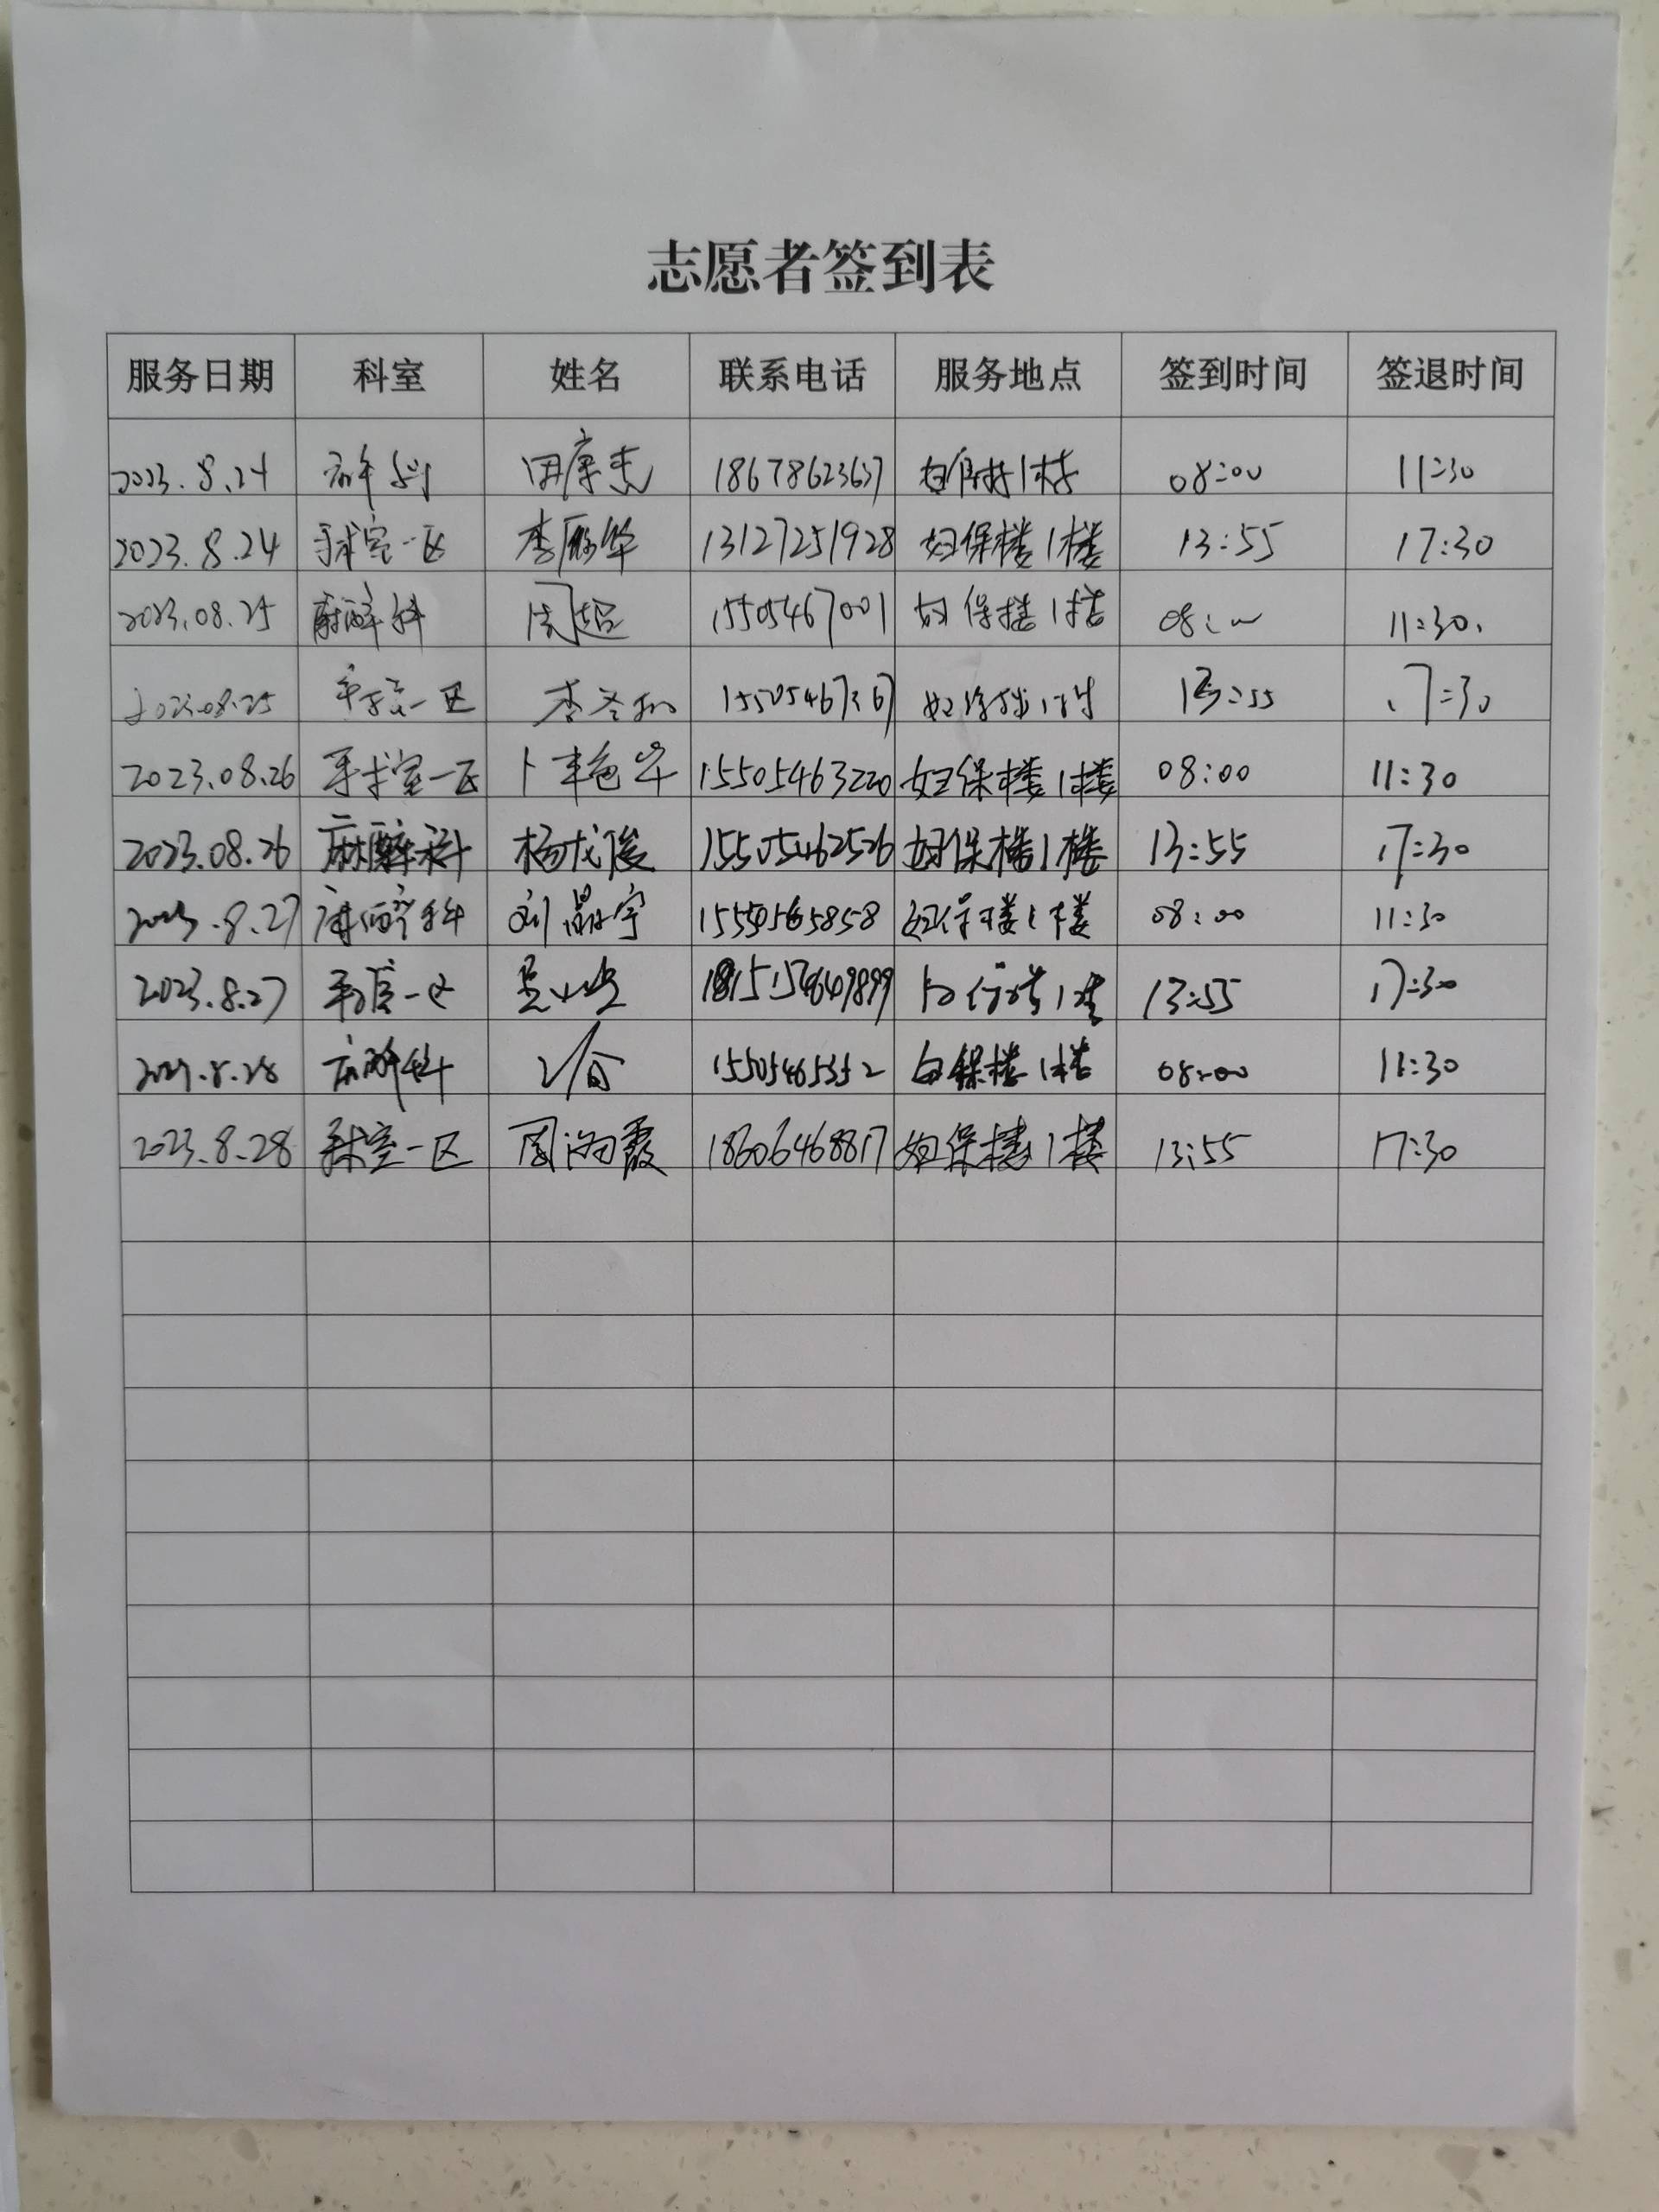 志愿者签到表
服务日期 科室 姓名 联系电话 服务地点 签到时间 签退时间
2023.8.24 田康杰 18678623637 1楼 08:00 11:30
2023.8.24 手术室一区 李丽华 13127251928 妇保楼1楼 13:55 17:30
2023.08.25 麻醉科 周超 15505467001 妇保楼1楼 08:00 11:30
2023.08.25 手术室一区 妇保楼1楼 13:55 17:30
2023.08.26 手术室一区 15505463220 妇保楼1楼 08:00 11:30
2023.08.26 麻醉科 杨成俊 15505462526 妇保楼1楼 13:55 17:30
2023.8.27 麻醉科 刘晶宇 妇保楼1楼 08:00 11:30
2023.8.27 手术室一区 1楼 13:55 17:30
2023.8.28 麻醉科 15505465352 妇保楼1楼 08:00 11:30
2023.8.28 手术室一区 18606468817 妇保楼1楼 13:55 17:30